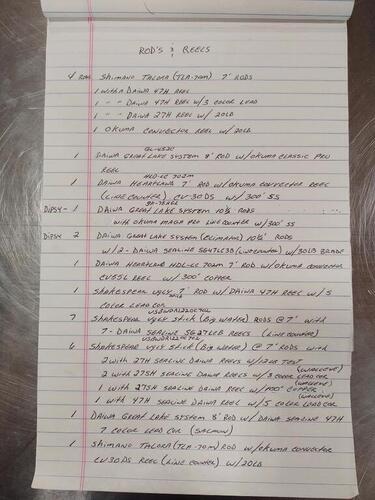 ROD'S & REELS
4 RODS SHIMANO TALORA (TLA-70M) 7' RODS
1 WITH A DAIWA 47H REEL
1 " " DAIWA 47H REEL W/3 COLOR LEAD
1 " " DAIWA 27H REEL W/ 20LB
1 OKUMA CONVECTOR REEL W/ 20LB
1 DAIWA GREAT LAKE SYSTEM 8' ROD W/OKUMA CLASSIC PRO
REEL
HLD-LC 702M
1 DAIWA HEARTLAND 7' ROD W/OKUMA CONVECTOR REEL
(LINE COUNTER) CV-30DS W/300' SS
DIPSY - 1 DAIWA GREAT LAKE SYSTEM 10½' RODS
WITH OKUMA MAGDA PRO LINE COUNTER W/300' SS
DIPSY 2 DAIWA GREAT LAKE SYSTEM 10½' RODS
W/2 - DAIWA SEALINE SG47LC3B (LINECOUNTER) W/30LB BRADE
1 DAIWA HEARTLAND HDL-LC 702M 7' ROD W/OKUMA CONVECTOR
CV55L REEL W/300' COPPER
1 SHAKESPEAR UGLY 7' ROD W/DAIWA 47H REEL W/5
STICK
COLOR LEAD COR
USBWDR1220C702
7 SHAKESPEAR UGLY STICK (BIG WATER) RODS @ 7' WITH
7 - DAIWA SEALINE SG27LCB REELS (LINE COUNTER)
USBWDR1220C702
6 SHAKESPEAR UGLY STICK (BIG WATER) @ 7' RODS WITH
2 WITH 27H SEALINE DAIWA REELS W/12LB TEST
(WALLEYE)
2 WITH 27SH SEALINE DAIWA REELS W/3 COLOR LEAD COR
(WALLEYE)
1 WITH 27SH SEALINE DAIWA REEL W/100' COPPER
(WALLEYE)
1 WITH 47H SEALINE DAIWA REEL W/5 COLOR LEAD COR
1 DAIWA GREAT LAKE SYSTEM 8' ROD W/DAIWA SEALINE 47H
7 COLOR LEAD COR (SALMON)
1 SHIMANO TALORA (TLA-70M) ROD W/OKUMA CONVECTOR
CV30DS REEL (LINE COUNTER) W/20LB